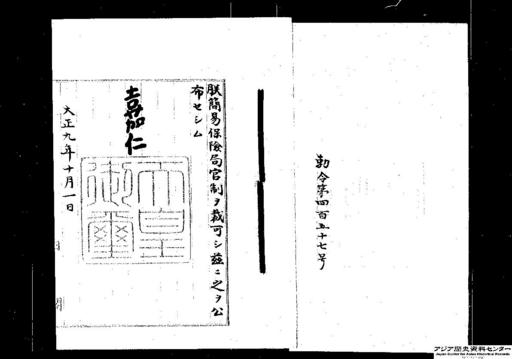 勅令第四百五十七号
朕簡易保險局官制ヲ裁可シ茲ニ之ヲ公
布セシム
嘉仁
天皇
御璽
大正九年十月一日
アジア歴史資料センター
Japan Center for Asian Historical Records